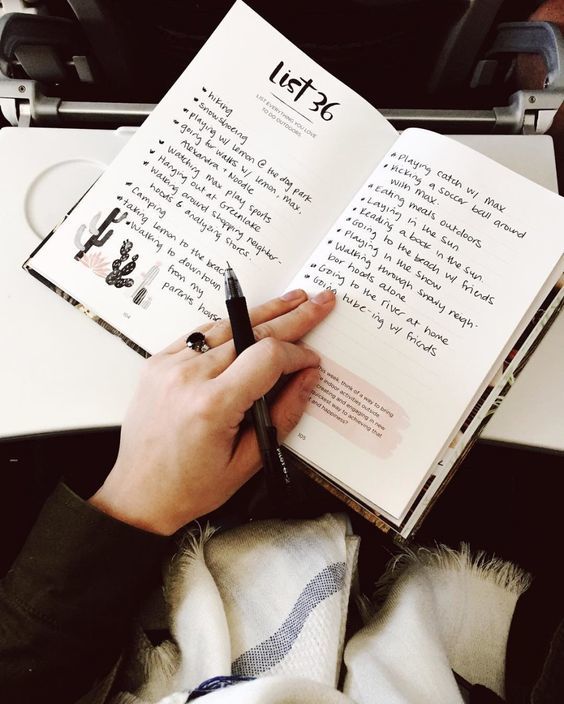 List 36
LIST EVERYTHING YOU LOVE
TO DO OUTDOORS.
hiking
snowshoeing
playing w/ lemon @ the dog park
going for walks w/ lemon, max,
Alexandra & Noodle
Watching max play sports
Hanging out at Greenlake
Walking around shopping neighbor-
hoods & analyzing stores.
Camping
Taking lemon to the beach
Walking to downtown
from my
parents house
104
Playing catch w/ max
Kicking a soccer ball around
with max.
Eating meals outdoors
Laying in the sun
Reading a book in the sun
Going to the beach w/ friends
Playing in the snow
Walking through snowy neigh-
borhoods alone
Going to the river at home
Going tube-ing w/ friends
This week, think of a way to bring
indoor activities outside.
creating and engaging in new
quickest way to achieving that
and happiness?
105